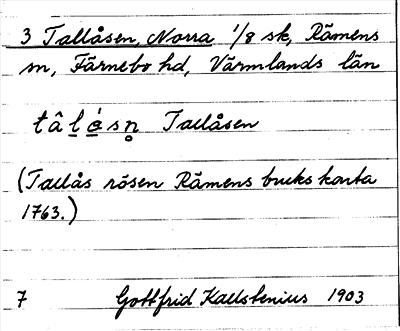 3 Tallåsen, Norra 1/8 sk, Rämens
sn, Färnebo hd, Värmlands län
tâlåsn Tallåsen
(Tallås rösen Rämens bruks karta
1763.)
7 Gottfrid Kallstenius 1903